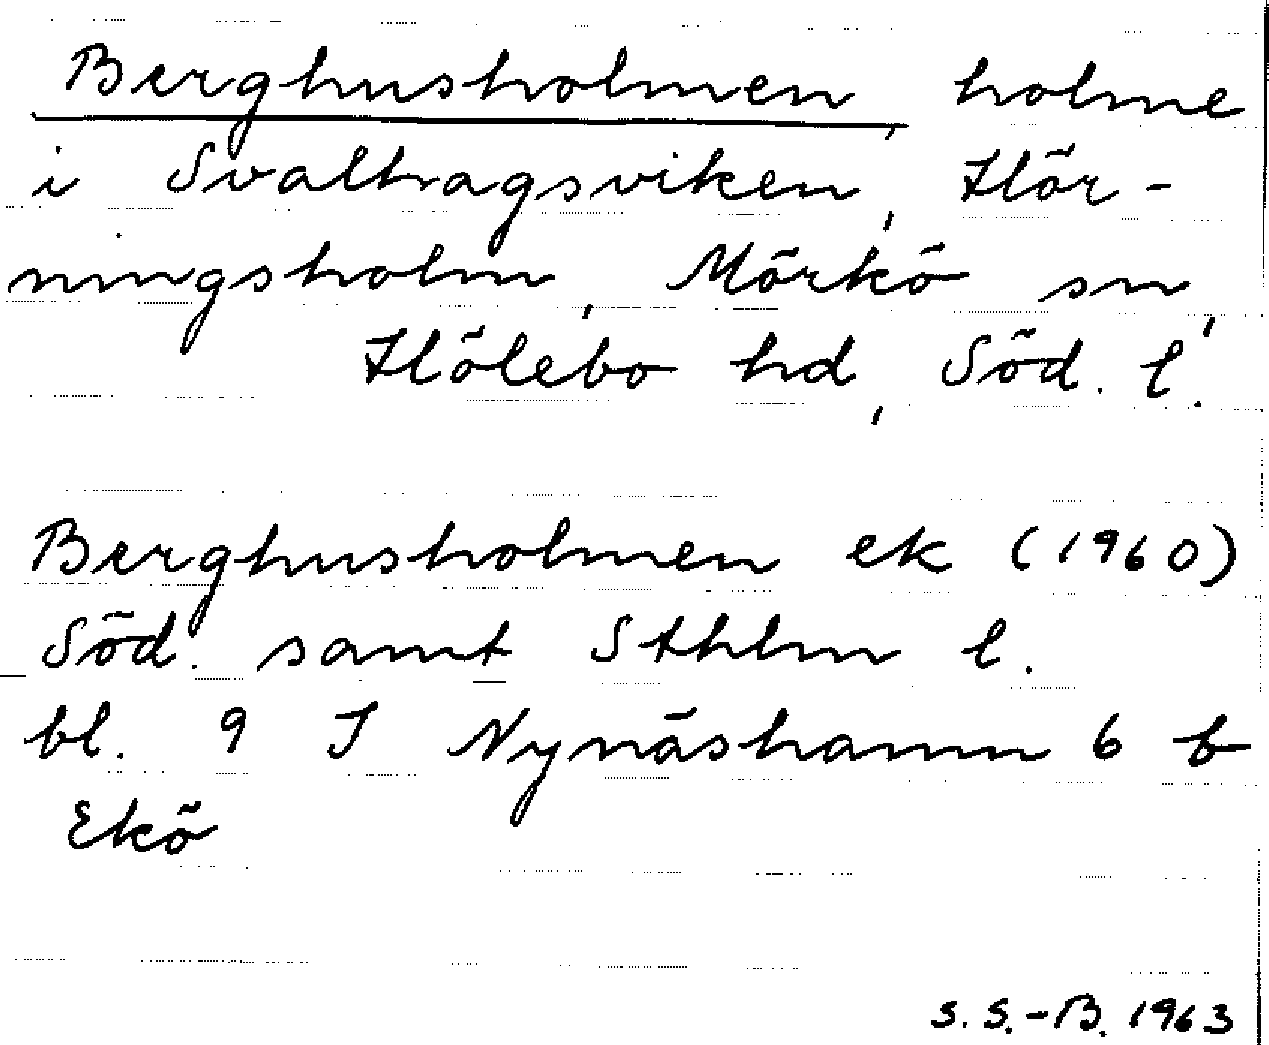 Berghusholmen, holme
i Svaltragsviken, Hör-
ningsholm, Mörkö sn,
Hölebo hd, Söd. l.
Berghusholmen ek (1960)
Söd. samt Sthlm l.
bl. 9 I Nynäshamn 6 b
Ekö
S.S.-B. 1963